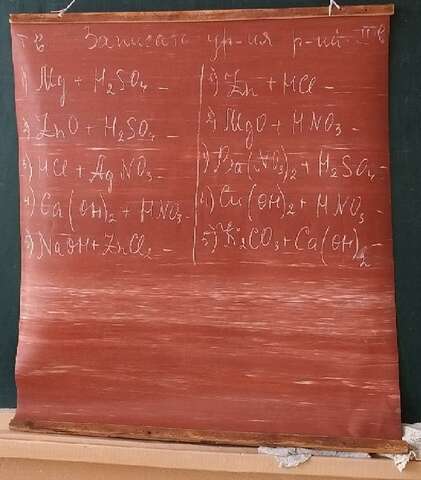 I в Записать ур-ия р-ий II в
1) Mg + H2SO4 -
2) ZnO + H2SO4 -
3) HCl + AgNO3 -
4) Ca(OH)2 + HNO3 -
5) NaOH + ZnCl2 -
1) Zn + HCl -
2) MgO + HNO3 -
3) Ba(NO3)2 + H2SO4 -
4) Cu(OH)2 + HNO3 -
5) K2CO3 + Ca(OH)2 -